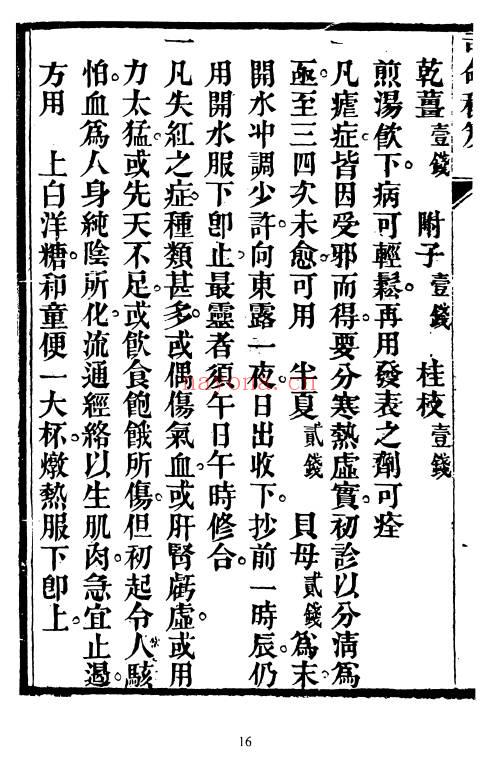 乾薑壹錢　附子壹錢　桂枝壹錢
煎湯飲下。病可輕鬆。再用發表之劑可痊
一凡瘧症皆因受邪而得。要分寒熱虛實。初診以分淸爲
亟。至三四次未愈。可用　半夏貳錢　貝母貳錢爲末。
開水冲調少許。向東露一夜。日出收下。抄前一時辰。仍
用開水服下卽止。最靈者須午日午時修合。
一凡失紅之症。種類甚多。或偶傷氣血。或肝腎虧虛。或用
力太猛。或先天不足。或飮食飽餓所傷。但初起令人駭
怕。血爲人身純陰所化。流通經絡。以生肌肉。急宜止遏。
方用　上白洋糖。和童便一大杯。燉熱服下卽止。
nayona.cn
16